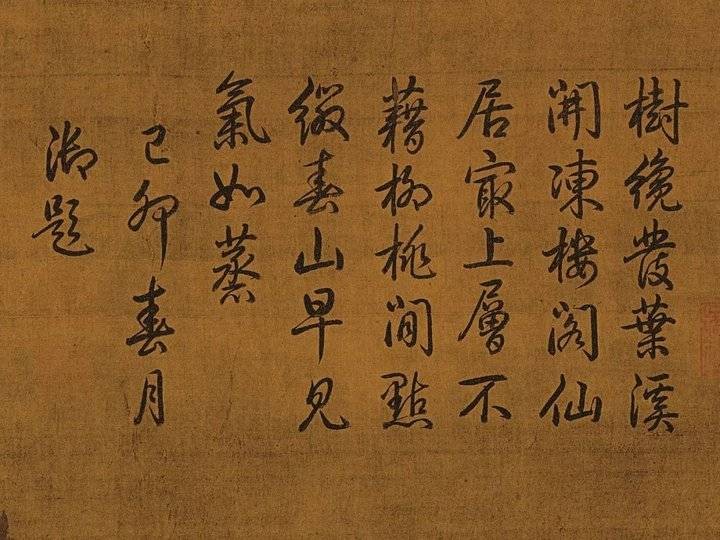 樹纔發葉溪
開凍樓閣仙
居冣上層不
藉柳桃閒點
綴春山早見
氣如蒸
己卯春月
御題